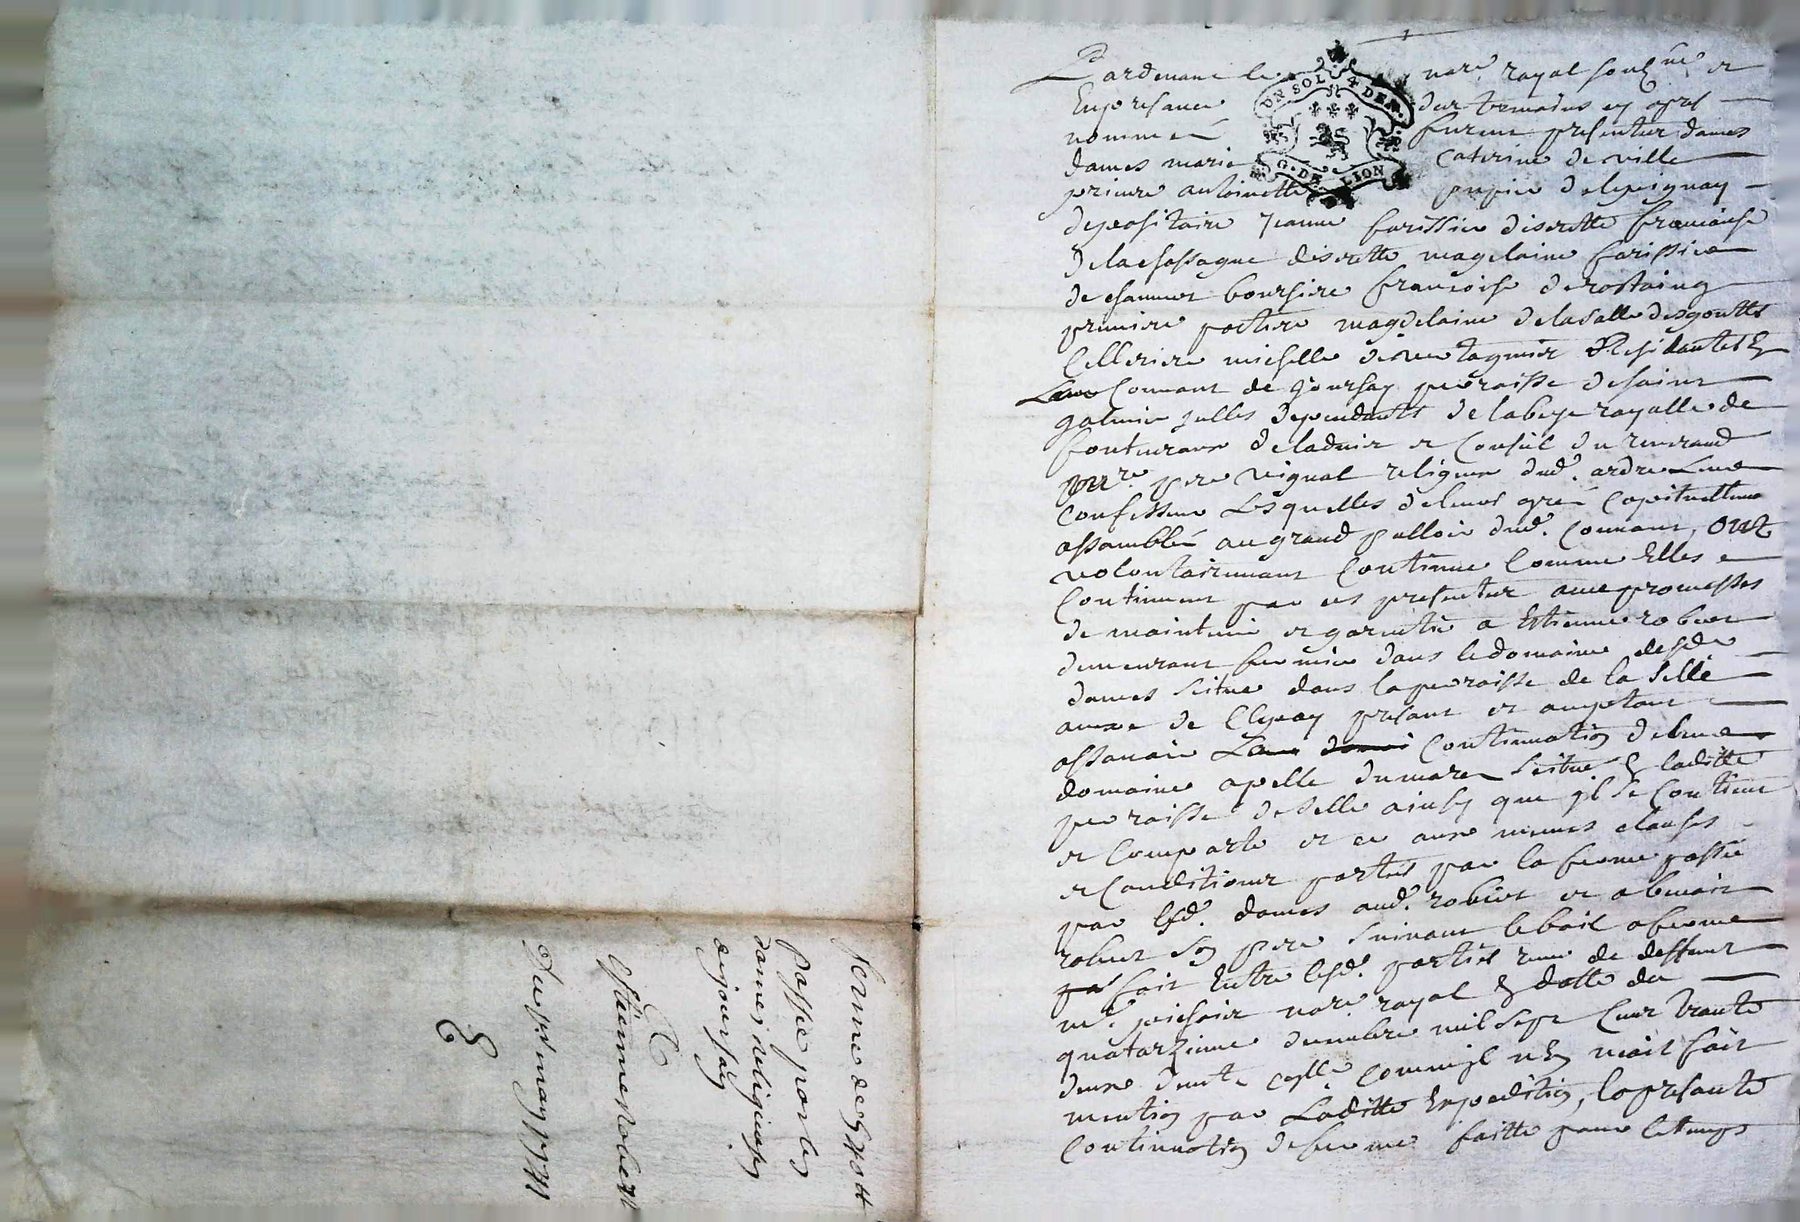 Pardevant le nore. royal soubné. et
En presance des temoins cy apres
nommés furent presentes dames
dames marie caterine de ville
prieure antoinette
depositaire jeanne farissier discrette francoise
de la chassagne discrette magdelaine farissier
de chaumes boursiere francoise de rostaing
premiere portiere magdelaine de la salle desgouttes
Cellerière michelle de montagnier Residantes En
Leur Couvant de jourssey parroisse de saint
galmier jcelles dependantes de labeye royalle de
fontevraux de ladvis et Conseil du reverand
pere vignal religieux dud. ordre Leur
Confesseur Lesquelles de leurs gré Capitulerme
assamblés au grand palloir dud. Couvant, ont
volontairemant Continué Comme Elles
Continuent par ces presentes avec promesses
de maintenir et garantir a Estienne robert
demeurant fermier dans le domaine desd.
dames scitué dans la parroisse de la selle
annexe de presant et acceptant
assavoir La Continuation de leur
domaine apellé du mazet scitué En laditte
parroisse de selle ainsy que jl se Contient
et Comporte et ce aux memes clauses
et Conditions portées par la ferme passée
par lesd. dames aud. robert et a benoit
robert son pere suivant le bail a ferme
fait Entre lesd. parties receu de deffunt
me. nore. royal En datte du
quatorzieme decembre mil sept Cent trante
deux Comme jl men avoit fait
mention par Laditte Expedition, la presante
Continuation de ferme faitte pour le temps
UN SOL 4 DEN.
G. DE LION
ferme de
passée par les
dames religieuses
de joursay
A
Estienne Robert
Du may 1741